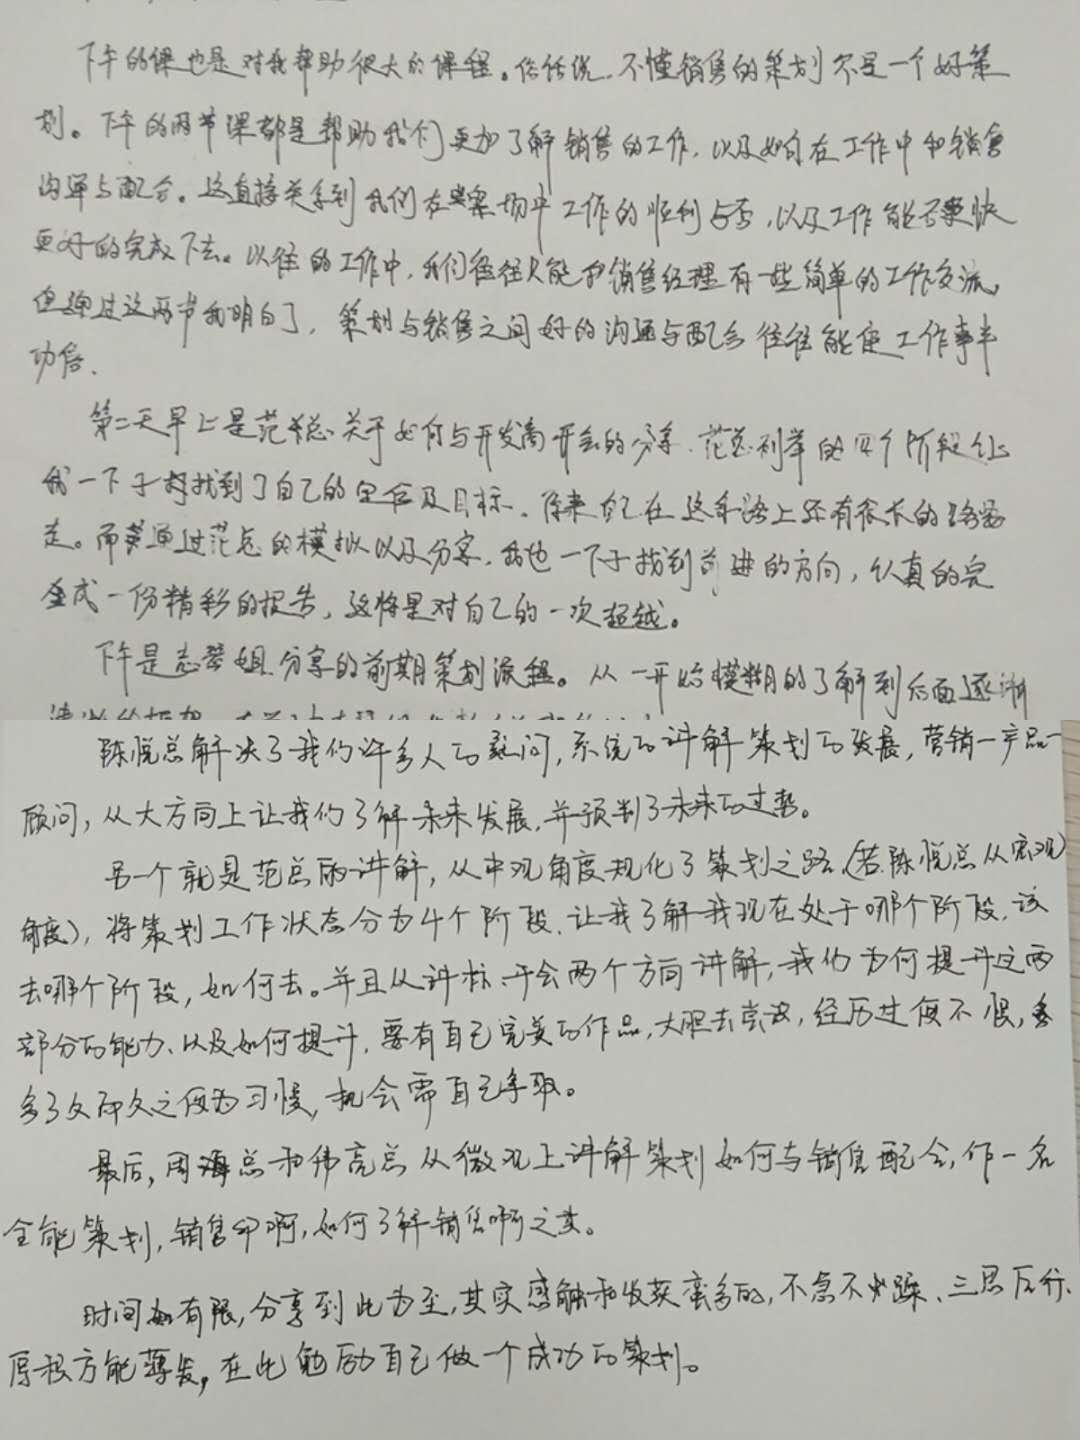 下午的课也是对我帮助很大的课程。俗话说,不懂销售的策划不是一个好策
划。下午的两节课都是帮助我们更加了解销售的工作,以及如何在工作中和销售
沟通与配合。这直接关系到我们在案场中工作的顺利与否,以及工作能否更快
更好的完成下去。以往的工作中,我们往往只能和销售经理有一些简单的工作交流,
但通过这两节我明白了,策划与销售之间好的沟通与配合往往能使工作事半
功倍.
第二天早上是范总关于如何与开发商开会的分享.范总列举的四个阶段让
我一下子找到了自己的定位及目标.原来自己在这条路上还有很长的路要
走。而通过范总的模拟以及分享,我也一下子找到前进的方向,认真的完
成一份精彩的报告,这将是对自己的一次超越。
下午是志琴姐分享的前期策划流程。从一开始模糊的了解到后面逐渐
陈悦总解决了我们许多人的疑问,系统的讲解策划的发展,营销—产品—
顾问,从大方向上让我们了解未来发展,并预判了未来的趋势。
另一个就是范总的讲解,从中观角度规化了策划之路(若陈悦总从宏观
角度),将策划工作状态分为4个阶段.让我了解我现在处于哪个阶段,该
去哪个阶段,如何去。并且从评标、开会两个方向讲解,我们为何提升这两
部分的能力、以及如何提升,要有自己完美的作品,大胆去尝试,经历过便不恨,
多了久而久之便为习惯,机会需自己争取。
最后,周海总和伟亮总从微观上讲解策划如何与销售配合,作一名
全能策划,销售印啊,如何了解销售啊之类。
时间如有限,分享到此为至,其实感触和收获蛮多的,不急不躁、三思后行、
厚积方能薄发,在此勉励自己做一个成功的策划。